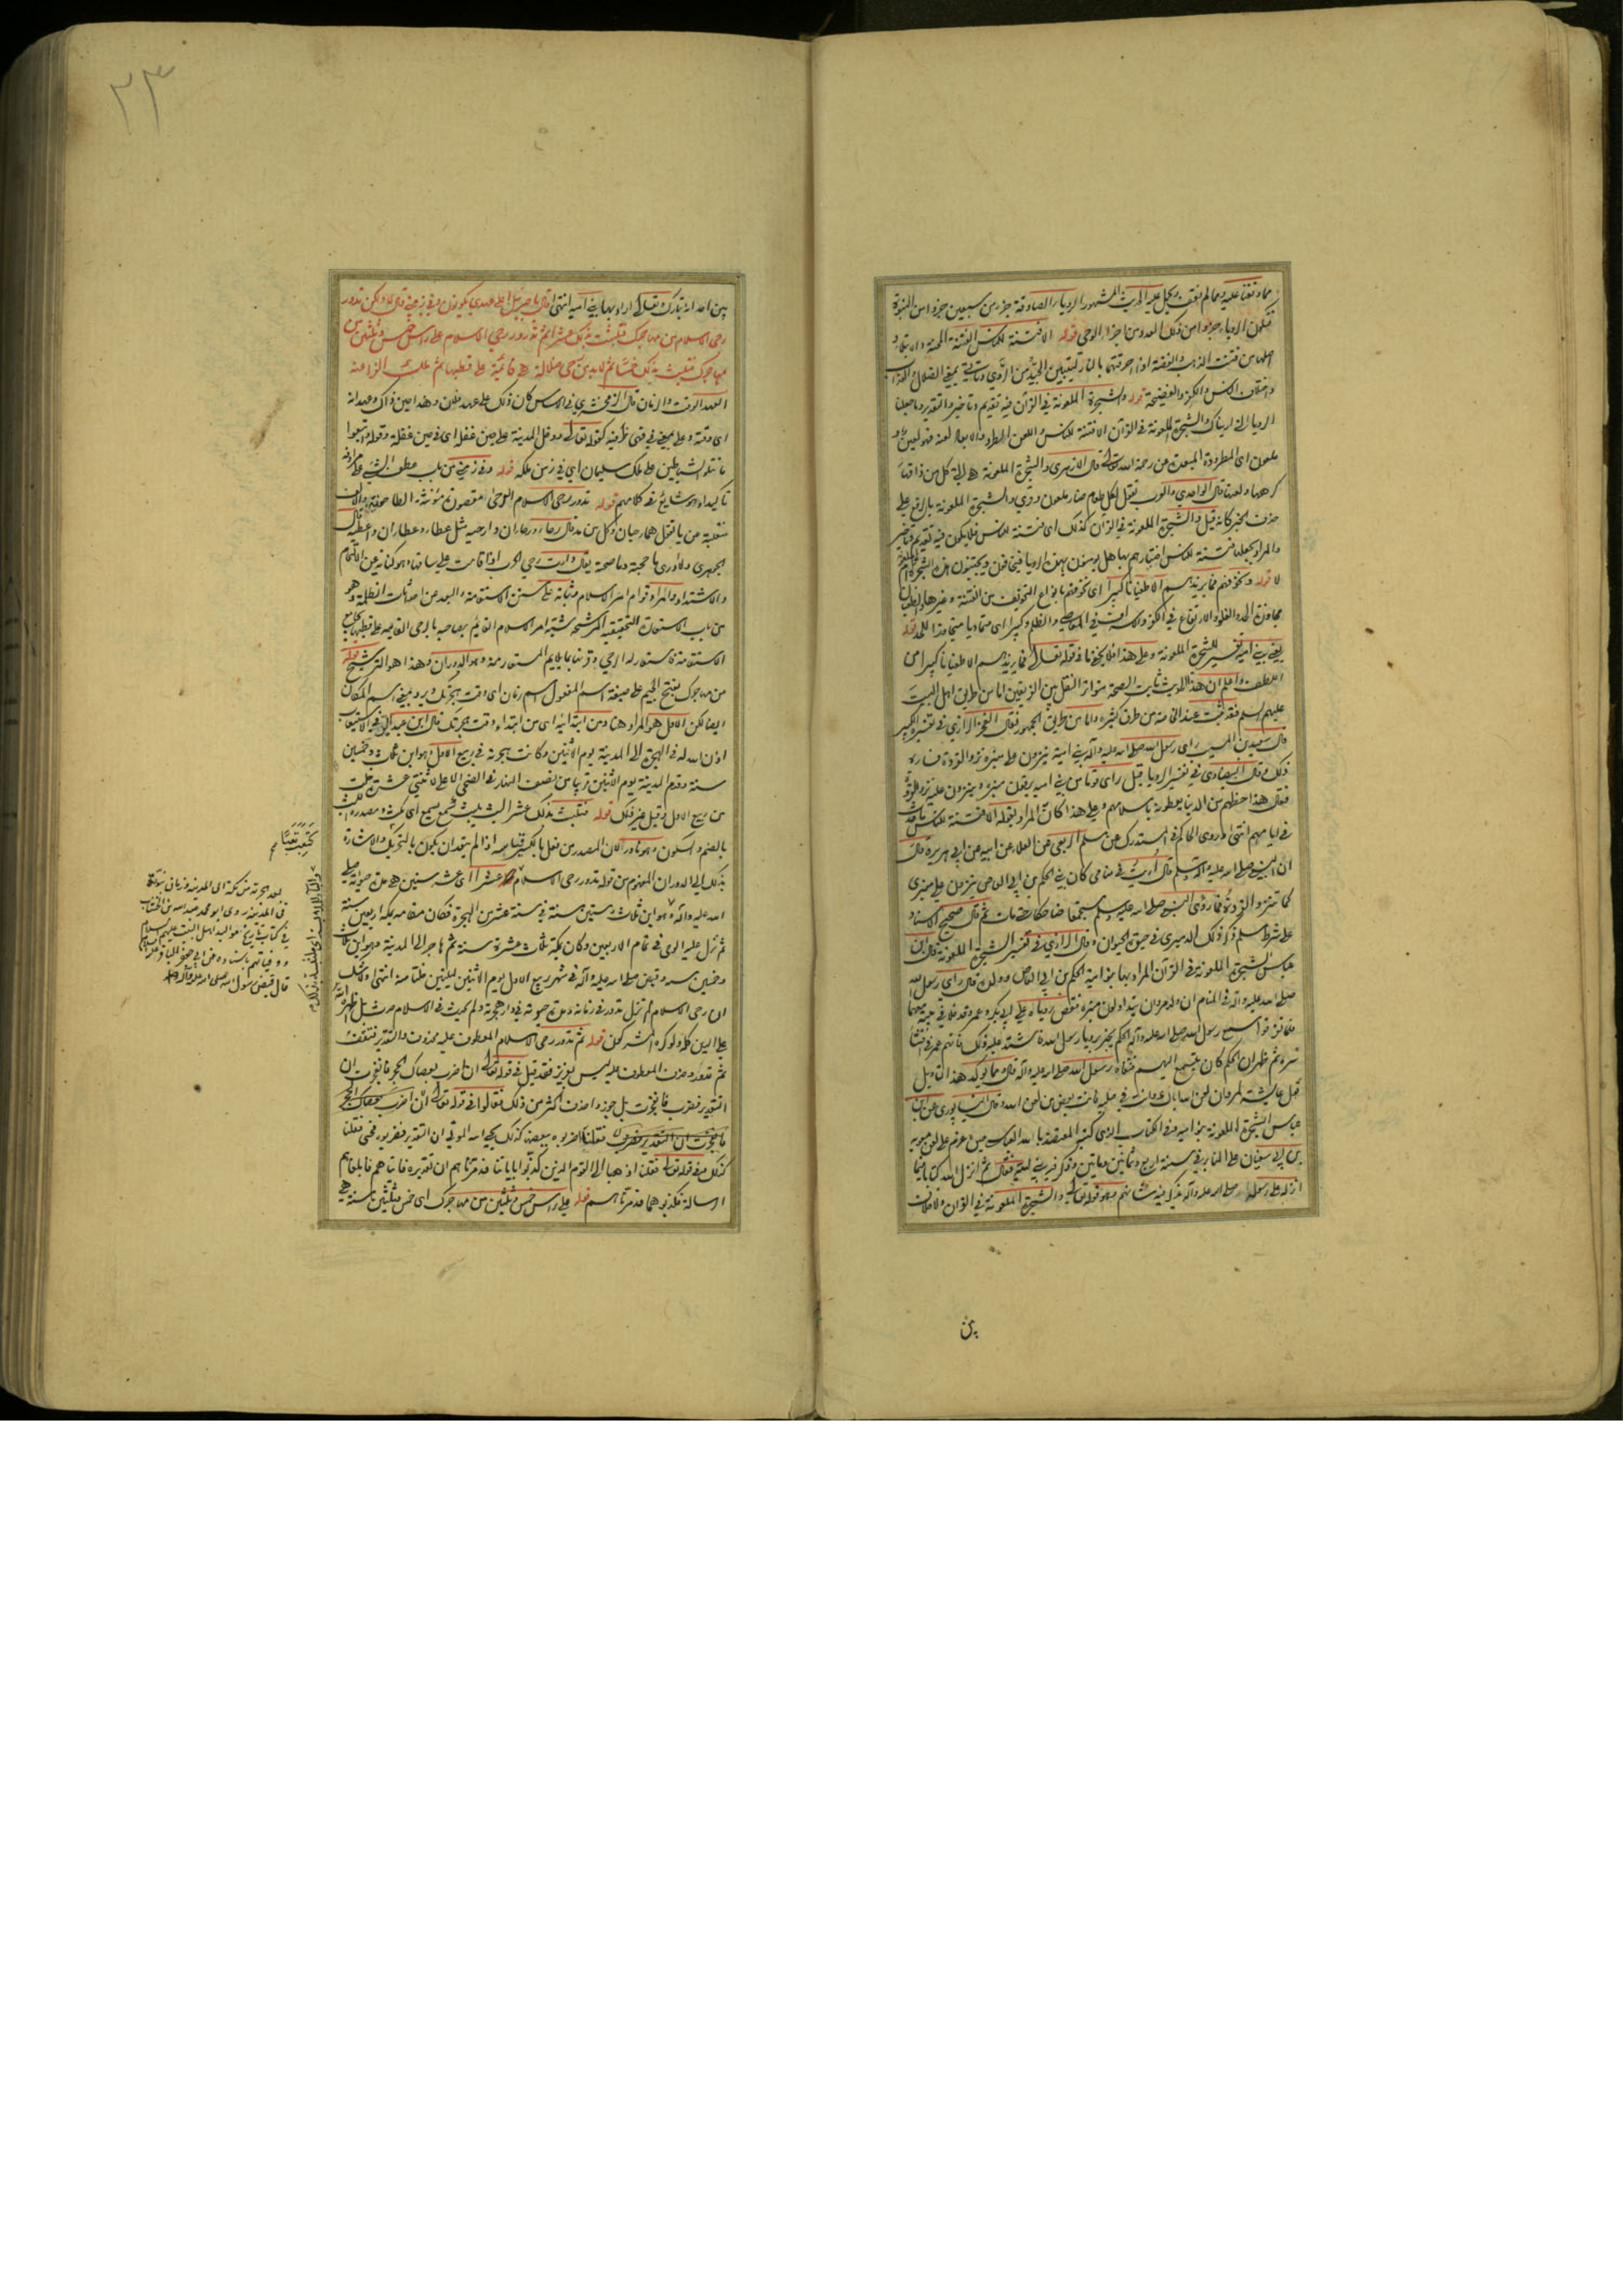 مما وقفنا عليه ومما لم نقف
الرؤيا الصادقة جزء من سبعين جزءا من النبوة
فيكون الرؤيا جزءا من ذلك العدد من اجزاء الوحى قوله الا فتنة للناس الفتنة المحنة والابتلاء
اصلها من فتنت الذهب والفضة اذا احرقتهما بالنار ليتبين الجيد من الردي وتاتي بمعنى الضلال
واختلاف الناس والكفر والفضيحة قوله والشجرة الملعونة في القرآن فيه تقديم وتاخير والتقدير وما جعلنا
الرؤيا التي اريناك والشجرة الملعونة في القرآن الا فتنة للناس واللعن الطرد والابعاد لعنه فهو لعين و
ملعون اى المطرودة المبعدة عن رحمة الله تعالى قال الازهري والشجرة الملعونة هي التي كل من ذاقها
كرهها ولعنها قال الواحدي والعرب تقول لكل طعام ضار ملعون وقرئ والشجرة الملعونة بالرفع على
حذف الخبر كانه قيل والشجرة الملعونة في القرآن كذلك اى فتنة للناس فلا يكون فيه تقديم وتاخير
والمراد بجعلها فتنة للناس اختبارهم بها هل يؤمنون بهذه الرؤيا فيخافون ويجتنبون هذه الشجرة
لا قوله ونخوفهم فما يزيدهم الا طغيانا كبيرا اى نخوفهم بانواع التخويف من الفتنة وغيرها والطغيان
مجاوزة الحد والغلو والارتفاع في الكفر والاسراف في المعاصي والظلم وكبيرا اى متماديا قوله
يعني بني امية تفسير للشجرة الملعونة وعلى هذا فلا يخفى ما في قوله تعالى فما يزيدهم الا طغيانا كبيرا من
اللطف واعلم ان هذا الحديث ثابت الصحة متواتر النقل من الفريقين اما من طريق اهل البيت
عليهم السلم فقد ثبت عند الخاصة من طرق كثيرة واما من طريق الجمهور فقال الفخر الرازي في تفسيره الكبير
قال سعيد بن المسيب راى رسول الله صلى الله عليه وآله بني امية ينزون على منبره نزو القردة فساءه
ذلك وقال البيضاوي في تفسير الرؤيا قيل راى قوما من بني امية يرقون منبره وينزون عليه نزو القردة
فقال هذا حظهم من الدنيا يعطونه باسلامهم وعلى هذا كان المراد بقوله الا فتنة للناس ما حدث
في ايامهم انتهى وروى الحاكم في المستدرك عن مسلم الربعى عن العلاء عن ابيه عن ابى هريرة قال
ان النبي صلى الله عليه وآله وسلم قال اريت في منامى كان بني الحكم بن ابى العاص ينزون على منبرى
كما تنزو القردة فما رؤى النبي صلى الله عليه وسلم مستجمعا ضاحكا حتى مات ثم قال صحيح الاسناد
على شرط مسلم ذكر ذلك الدميرى في حيوة الحيوان وقال الرازي في تفسير الشجرة الملعونة قال ابن
عباس الشجرة الملعونة في القرآن المراد بها بنو امية الحكم بن ابى العاص وولده قال راى رسول الله
صلى الله عليه وآله في المنام ان ولد مروان يتداولون منبره فقص رؤياه على ابى بكر وعمر وقد خلا في بيته معهما
فلما تفرقوا سمع رسول الله صلى الله عليه وآله الحكم يخبر برؤيا رسول الله فاشتد عليه ذلك فاتهم عمر في افشاء
سره ثم ظهر ان الحكم كان يتسمع اليهم فنفاه رسول الله صلى الله عليه وآله قال ومما يوكد هذا التاويل
قول عايشة لمروان لعن الله اباك وانت في صلبه فانت بعض من لعن الله وقال النيسابورى عن ابن
عباس الشجرة الملعونة بنو امية
بن ابى سفيان على المنابر في سنة اربع وثمانين ومأتين ثم انزل الله كتابا فيما
انزله على رسوله صلى الله عليه وآله يذكر فيه شانهم وهو قوله تعالى والشجرة الملعونة في القرآن ولا خلاف
بين
٢٣
بين احد انه تبارك وتعالى اراد بها بني امية انتهى قال يا جبرئيل اعلى عهدى يكونون وفي زمني قال لا ولكن تدور
رحى الاسلام من مهاجرك فتلبث بذلك عشرا ثم تدور رحى الاسلام على راس خمس وثلثين من
مهاجرك فتلبث بذلك خمسا ثم لا بد من رحى ضلالة هي قائمة على قطبها ثم ملك الفراعنة
العهد الوقت والزمان قال الزمخشري في الاساس كان ذلك على عهد فلان وهذا حين ذاك وعهدانه
اى وقته وعلى بمعنى في فهى ظرفية كقوله تعالى ودخل المدينة على حين غفلة اى في حين غفلة وقوله واتبعوا
ما تتلو الشياطين على ملك سليمان اى في زمن ملكه قوله وفي زمني من باب عطف الشيء على مرادفه
تاكيدا وهو شايع في كلامهم قوله تدور رحى الاسلام الرحى مقصورة مؤنثة الطاحونة والالف
منقلبة من يا تقول هما رحيان وكل من مد قال رحاء ورحاآن وارحية مثل عطاء وعطاآن واعطية قال
الجوهرى ولا ادرى ما حجته وما صحته يقال دارت رحى الحرب اذا قامت على ساقها وهو كناية عن الالتحام
والاشتداد والمراد قوام امر الاسلام وثباته على سنن الاستقامة والبعد من احداث الظلمة وهو
من باب الاستعارة التحقيقية المرشحة شبه امر الاسلام القايم بصاحبه بالرحى القايمة على قطبها بجامع
الاستقامة فاستعار له الرحى وقرنها بما يلايم المستعار منه وهو الدوران وهذا هو الترشيح قوله
من مهاجرك بفتح الجيم على صيغة اسم المفعول اسم زمان اى وقت هجرتك ويرد بمعنى اسم المكان
ايضا لكن الاول هو المراد هنا ومن ابتدائية اى من ابتداء وقت هجرتك قال ابن عبد البر في الاستيعاب
اذن الله له في الهجرة الى المدينة يوم الاثنين وكانت هجرته في ربيع الاول وهو ابن ثلث وخمسين
سنة وقدم المدينة يوم الاثنين قريبا من نصف النهار في الضحى الاعلى لاثنتي عشرة خلت
من ربيع الاول وقيل غير ذلك قوله فتلبث بذلك عشرا لبث يلبث كسمع يسمع اى مكث ومصدره اللبث
بالضم والسكون وهو نادر لان المصدر من فعل بالكسر قياسه اذا لم يتعد ان يكون بالتحريك والاشارة
بذلك الى الدوران المفهوم من قوله تدور رحى الاسلام عشرا اى عشر سنين هي مدة حيوته صلى
الله عليه وآله وهو ابن ثلث وستين سنة في سنة عشر من الهجرة فكان مقامه بمكة اربعين سنة
ثم نزل عليه الوحى في تمام الاربعين وكان بمكة ثلث عشرة سنة ثم هاجر الى المدينة وهو ابن ثلث
وخمسين سنة وقبض صلى الله عليه وآله في شهر ربيع الاول يوم الاثنين لليلتين خلتا منه انتهى ولا شك
ان رحى الاسلام لم تزل تدور في زمانه ومدة حيوته في دار هجرته ولم يحدث في الاسلام حدث بل اظهره الله
على الدين كله ولو كره المشركون قوله ثم تدور رحى الاسلام المعطوف عليه محذوف والتقدير فتقف
ثم تدور وحذف المعطوف عليه ليس بعزيز فقد قيل في قوله تعالى ان اضرب بعصاك الحجر فانفجرت ان
التقدير فضرب فانفجرت بل جوزوا حذف اكثر من ذلك فقالوا في قوله تعالى ان اضرب بعصاك الحجر
فانفجرت ان التقدير فضرب فقلنا اضربوه ببعضها كذلك يحيي الله الموتى ان التقدير فضربوه فحيي فقلنا
كذلك وفي قوله تعالى فقلنا اذهبا الى القوم الذين كذبوا باياتنا فدمرناهم ان تقديره فاتياهم فابلغاهم
الرسالة فكذبوهما فدمرناهم قوله على راس خمس وثلثين من مهاجرك اى خمس وثلثين سنة هي
كتعب تعبا
بعد هجرته من مكة الى المدينة
في المدينة روى ابو محمد عبد الله بن الخشاب
في كتاب تاريخ مواليد اهل البيت عليهم السلام
ووفياتهم باسناده عن ابي جعفر الباقر عليه السلام
قال قبض رسول الله صلى الله عليه وآله